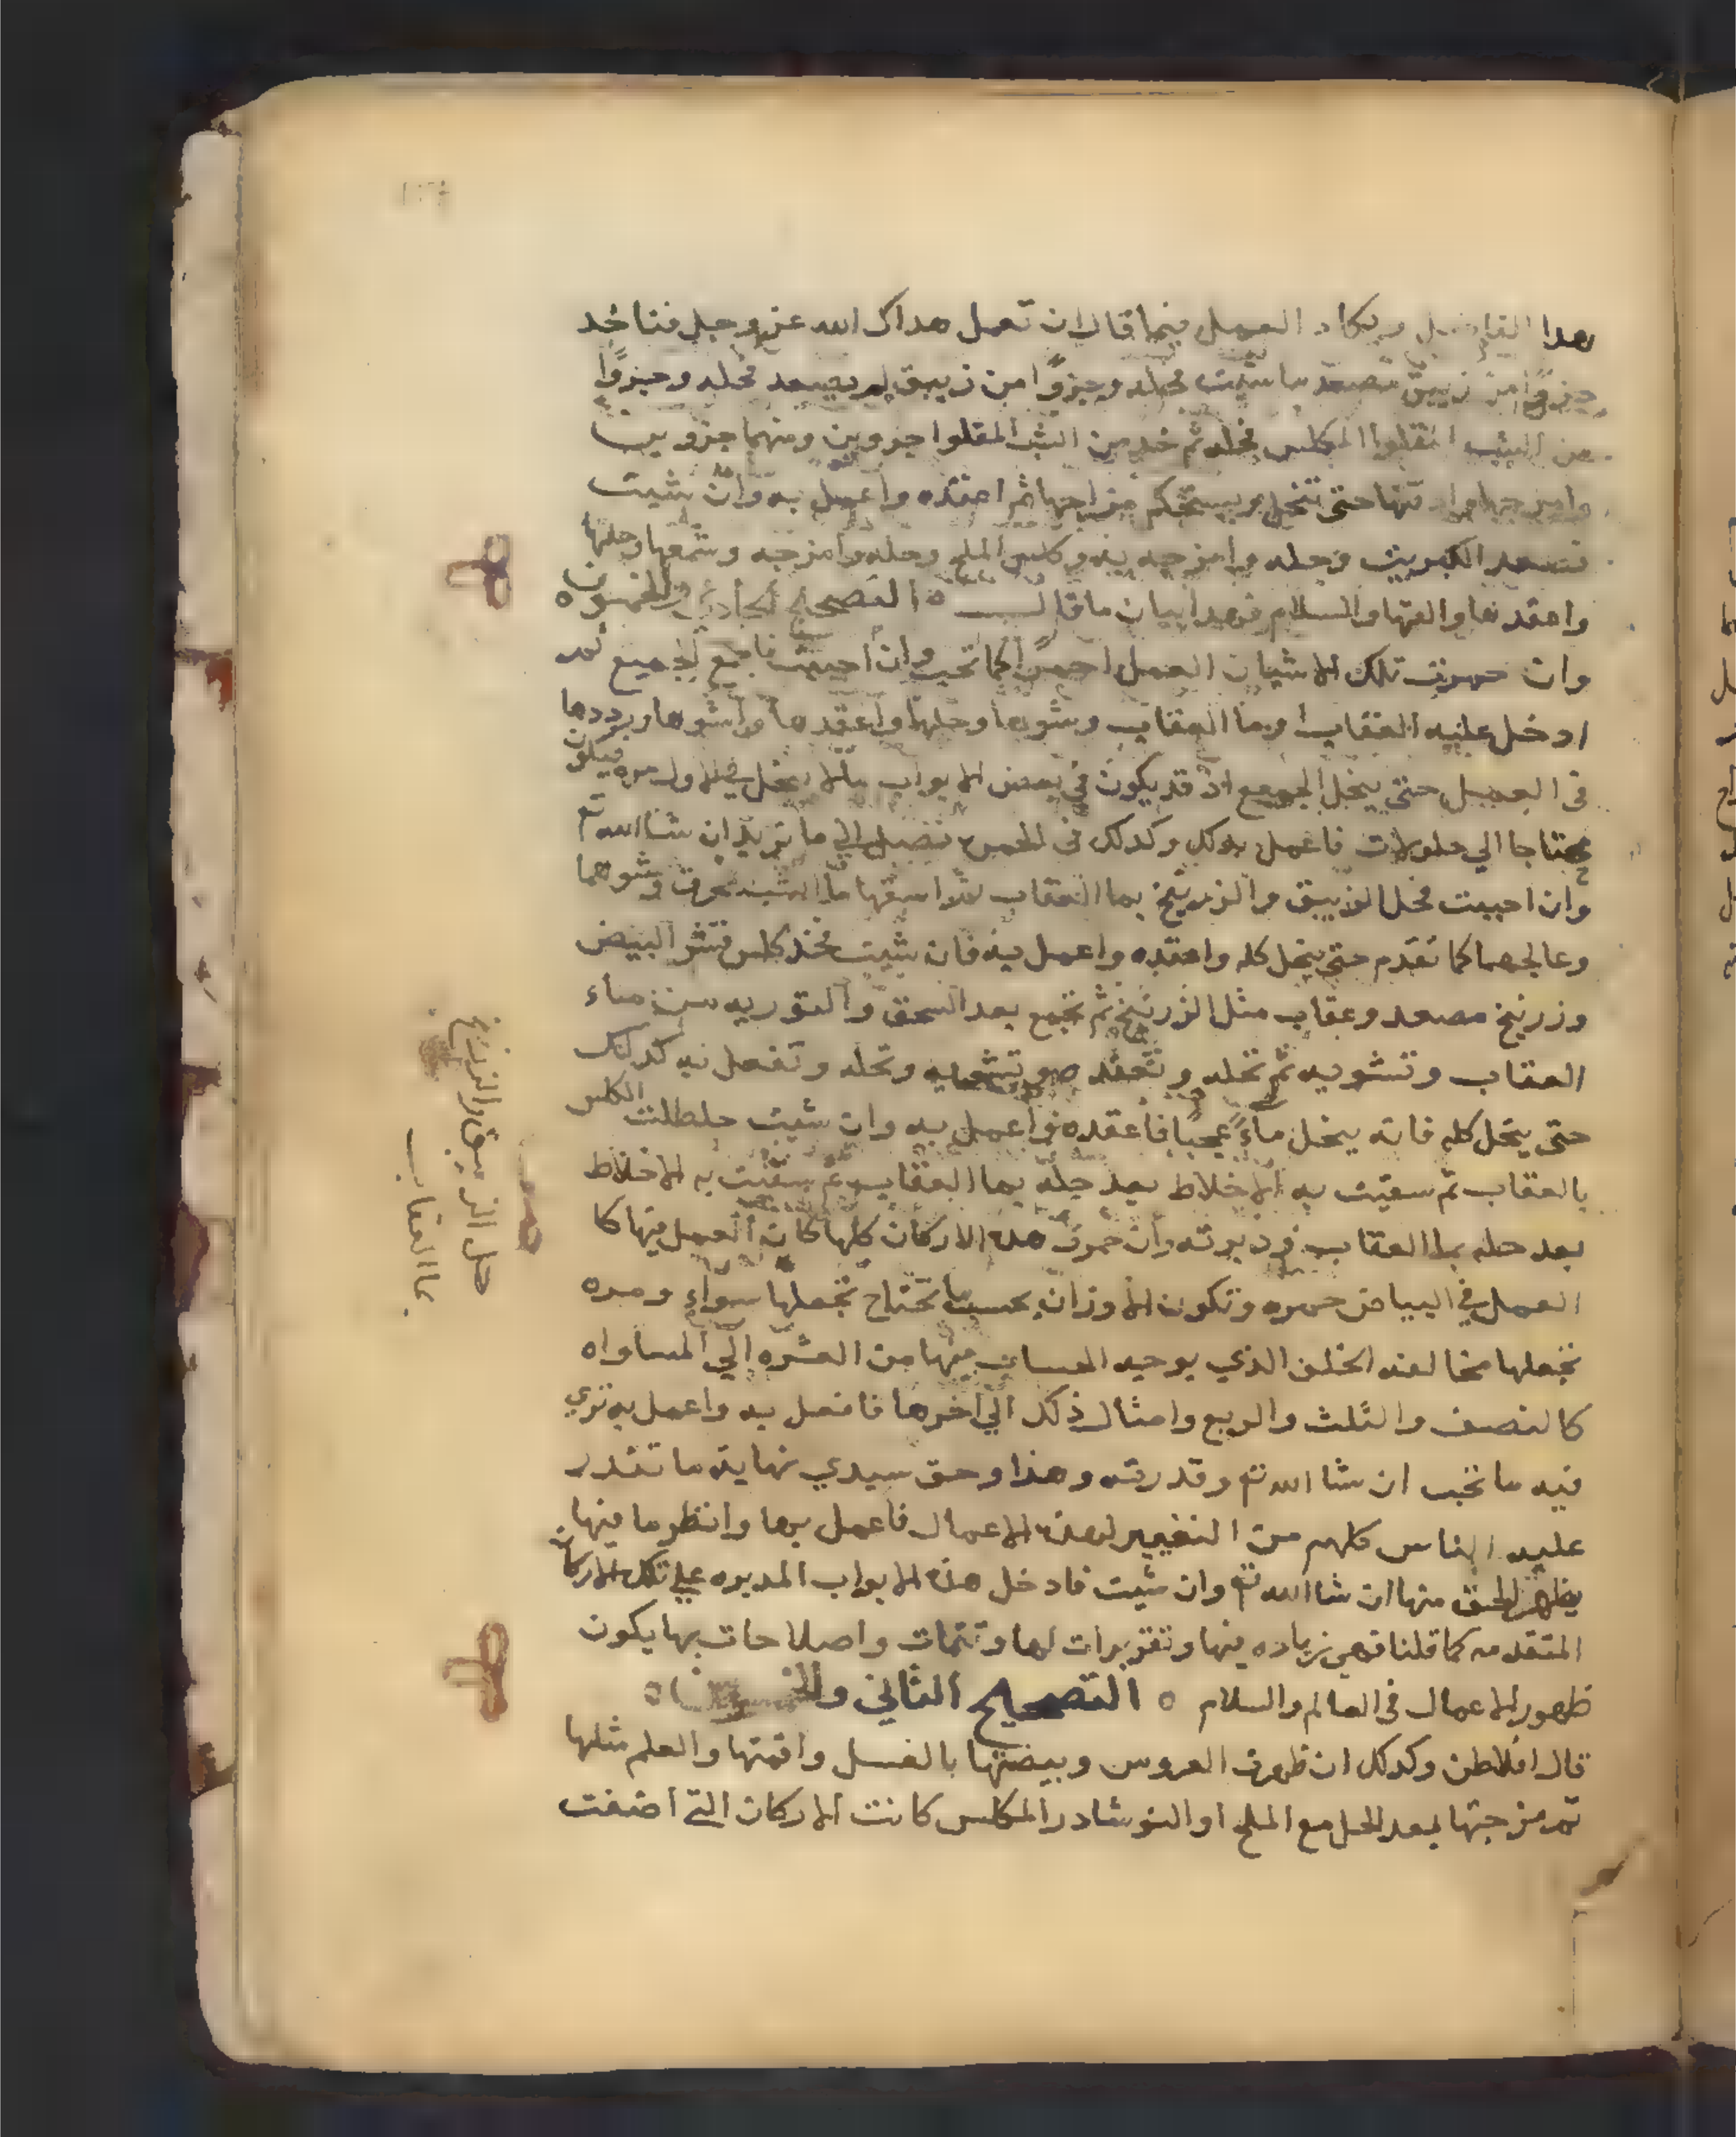 هدا العمل فيما قال ان تعمل هداك الله عز وجل فتاخد
جزوًا من زيبق تصعد ما شيت فحله وجزوًا من زيبق لم يصعد فحله وجزوًا
من الشب المكلس فحله ثم خد من الشب المقلوا جزوين ومنهما جزويں
حتى تنحل ويستحكم مزاجها ثم اعقده واعمل به وان شيت
فصعد الكبريت وحله وامزجه به وكلس الملح وحله وامزجه وشمعها وحلها
واعقدها والقها والسلام فهدا بيان ما قال ه التصحيح الحادي والخمسون ه
وان حمرت تلك الاشيا ن العمل احمرًا كما تحب وان احببت فاجمع الجميع ثم
ادخل عليه العقاب وما العقاب وشوها وحلها واعقدها واشوها ورددها
فى العمل حتى ينحل الجميع اد قد يكون في بعض الابواب مالا ينحل في الاول مره فيكون
محتاجا الي حلولات فاعمل بدلك وكدلك فى الحمره تصل الي ما تريد ان شا الله تع
وان احببت فحل الزيبق والزرنيخ بما العقاب ثم اسقها ما الشبه وشوهما
وعالجهما كما تقدم حتى ينحل كله واعقده واعمل به فان شيت فخد كلس قشر البيض
وزرنيخ مصعد وعقاب مثل الزرنيخ ثم تجمع بعد السحق والتوريه من ماء
العقاب وتشويه ثم تحله وتعقده وتشويه وتحله وتفعل به كدلك
حتى ينحل كله فانه ينحل ماءً عجيبًا فاعقده واعمل به وان شيت خلطت الكلس
بالعقاب ثم سقيت به الاخلاط بعد حله بما العقاب ثم سقيت به الاخلاط
بعد حله بما العقاب ودبرته وان حمرت هده الاركان كلها كان العمل فيها كا
العمل في البياض حمره وتكون الاوزان بحسب ما تحتاج تجعلها سواء ومره
تجعلها مخالفه الخلف الذي يوجبه الحساب بينها من العشره الي المساواه
كالنصف والثلث والربع وامثال ذلك الي اخرها فافعل به واعمل به تري
فيه ما تحب ان شا الله تع وقدرته وهذا وحق سيدي نهاية ما تقدر
عليه الناس كلهم من التغيير لهده الاعمال فاعمل بها وانظر ما فيها
يظهر الحق منها ان شا الله تع وان شيت فادخل هده الابواب المدبره علي تلك الاركان
المتقدمه كما قلنا فهي زياده فيها وتقريرات لها وتتمات واصلاحات بها يكون
ظهور الاعمال فى العالم والسلام ه التصحيح الثاني والخمسون ه
قال افلاطن وكدلك ان طهرت العروس وبيضتها بالغسل واقمتها والعلم مثلها
ثم مزجتها بعد الحل مع الملح او النوشادر المكلس كانت الاركان التي اضفت
حل الزيبق والزرنيخ
بما العقاب